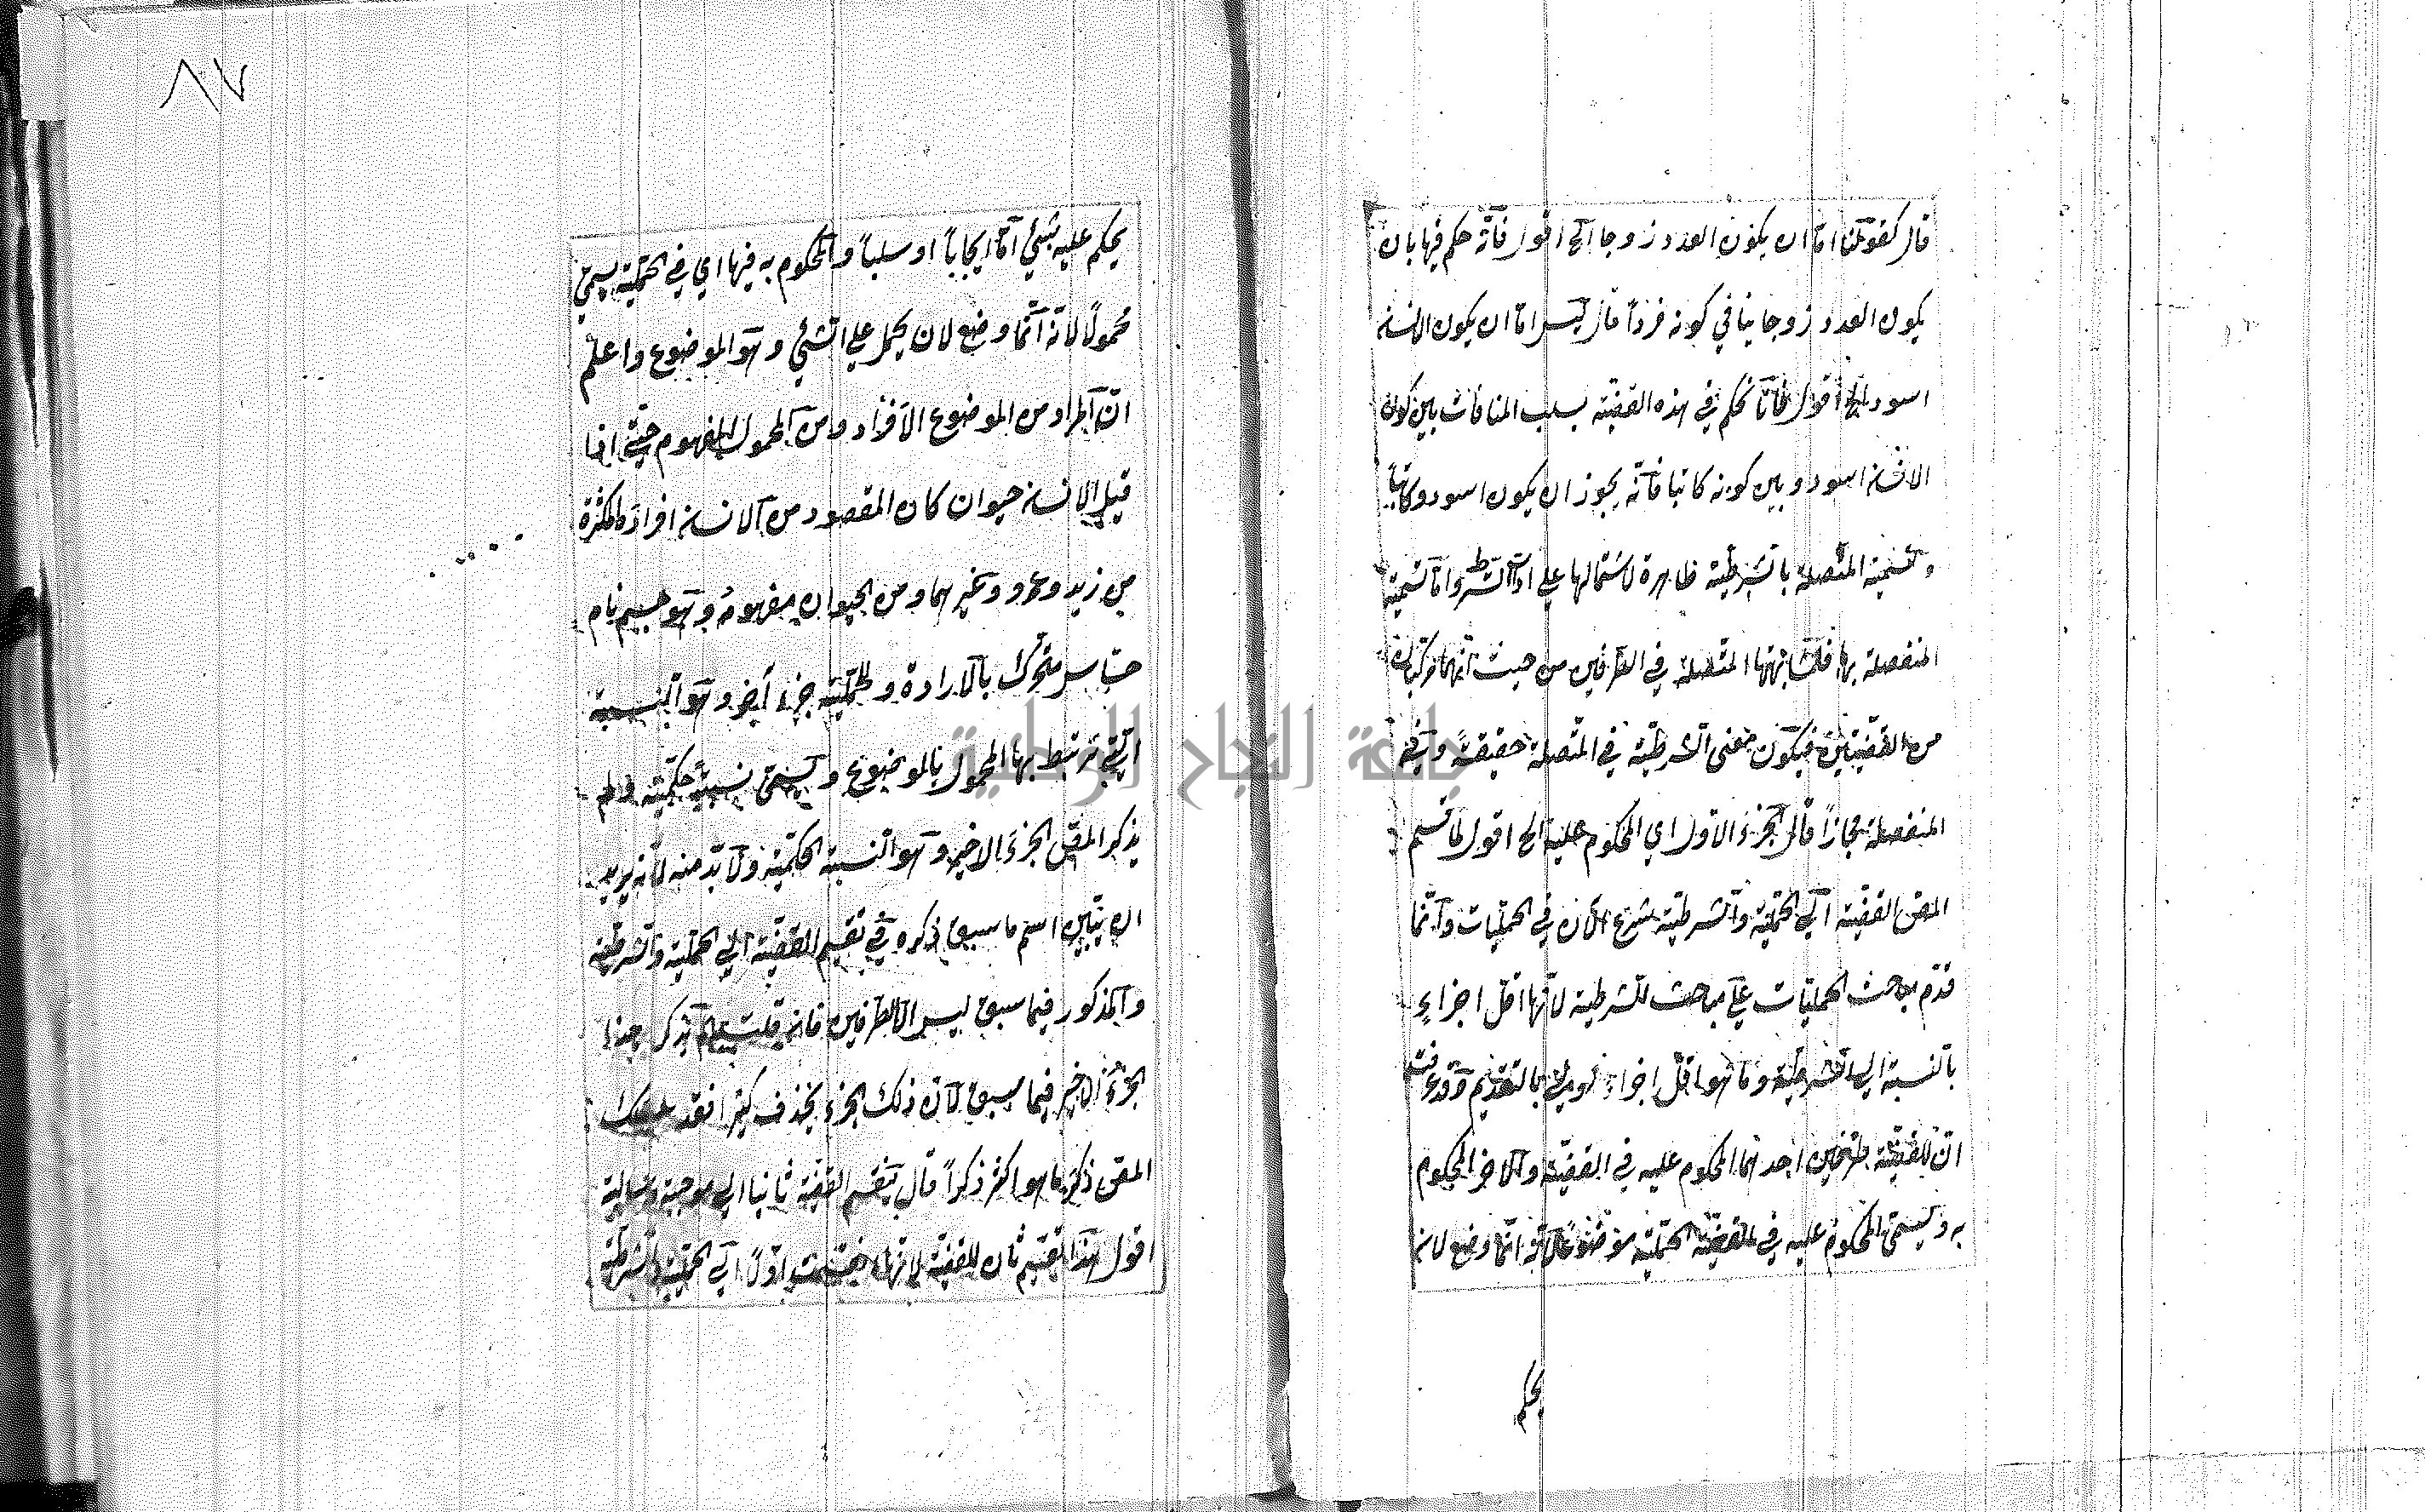 قال كقولنا اما ان يكون العدد زوجا الخ اقول فانّه حكم فيها بان
يكون العدد زوجا ينافي كونه فرداً قال ليس اما ان يكون الانسان
اسود الخ اقول فانّا نحكم في هذه القضيّة بسلب المنافات بين كون
الانسان اسود وبين كونه كاتبا فانّه يجوز ان يكون اسود وكاتباً
وتسمية المتّصلة بالشرطيّة ظاهرة لاشتمالها على ادات الشرط وامّا تسمية
المنفصلة بها فلمشابهتها المتّصلة في الطرفين من حيث انّهما مركّبان
من القضيّتين فيكون معنى الشرطيّة في المتّصلة حقيقةً وفي
المنفصلة مجازاً قال الجزء الاوّل اي المحكوم عليه الخ اقول لمّا قسم
المص القضيّة الى الحمليّة والشرطيّة شرع الآن في الحمليّات وانّما
قدّم مباحث الحمليّات على مباحث الشرطية لانّها اقلّ اجزاءٍ
بالنسبة الى الشرطيّة وما هو اقلّ اجزاء اولى بالتقديم وقد عرفت
انّ للقضيّة طرفين احدهما المحكوم عليه في القضيّة والآخر المحكوم
به ويسمّى المحكوم عليه في القضيّة الحمليّة موضوعاً لانّه انّما وضع لان
يحكم
٨٧
يحكم عليه بشئ امّا ايجاباً او سلباً والمحكوم به فيها اي في الحمليّة يسمّى
محمولاً لانّه انّما وضع لان يحمل على الشئ وهو الموضوع واعلم
انّ المراد من الموضوع الافراد ومن المحمول المفهوم حتّى اذا
قيل الانسان حيوان كان المقصود من الانسان افراده المكثرة
من زيد وعمرو وغيرهما ومن الحيوان مفهومهُ وهو جسم نام
حسّاس متحرّك بالارادة وللحمليّة جزء أيض وهو النسبة
الّتي ترتبط بها المحمول بالموضوع وتسمّى نسبةً حكميّة ولم
يذكر المص الجزء الاخير وهو النسبة الحكميّة ولا بدّ منه لانّه يريد
ان يبيّن اسم ما سبق ذكره في تقسيم القضيّة الى الحمليّة والشرطيّة
والمذكور فيما سبق ليس الّا الطرفين فان قلت لم لم يذكر هذا
الجزء الاخير فيما سبق لانّ ذلك الجزء يحذف كثيرا فقد
المص ذكر ما هو اكثر ذكراً قال تنقسم القضيّة ثانيا الى موجبة وسالبة
اقول هذا تقسيم ثان للقضيّة لانّها قسّمت اوّلاً الى الحمليّة والشرطيّة